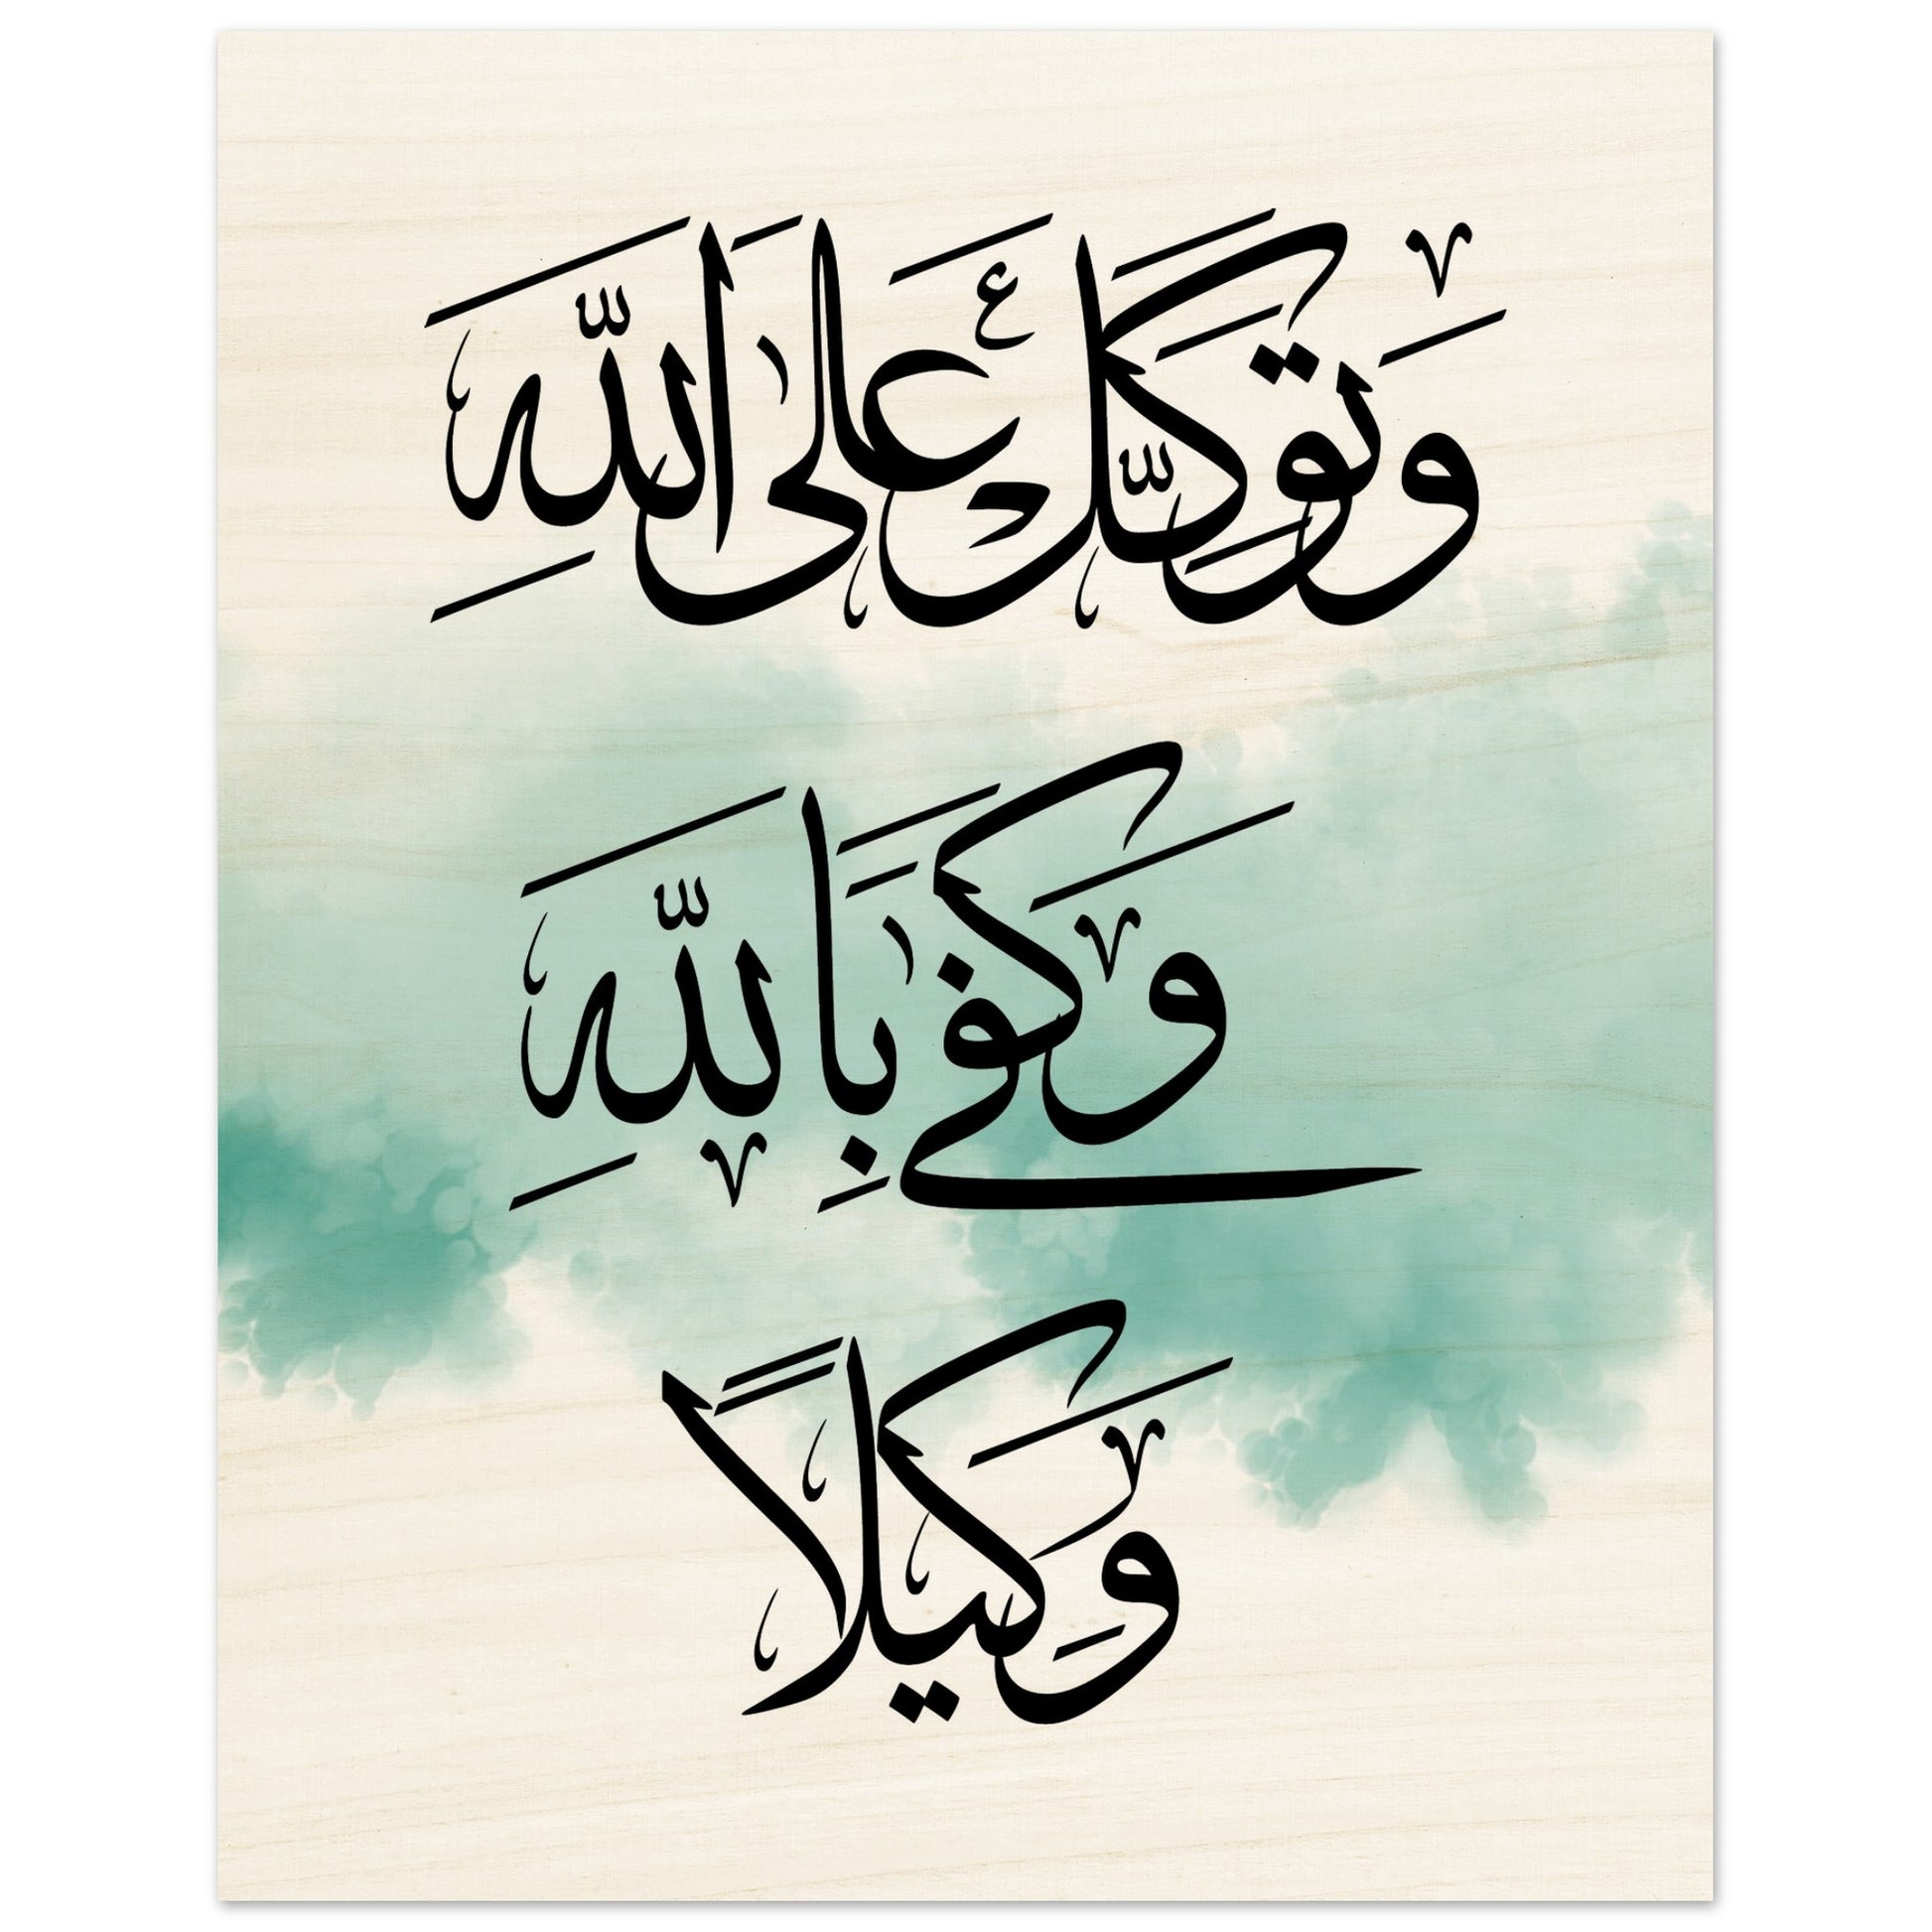 وَتَوَكَّلْ عَلَى اللَّهِ
وَكَفَى بِاللَّهِ
وَكِيلًا